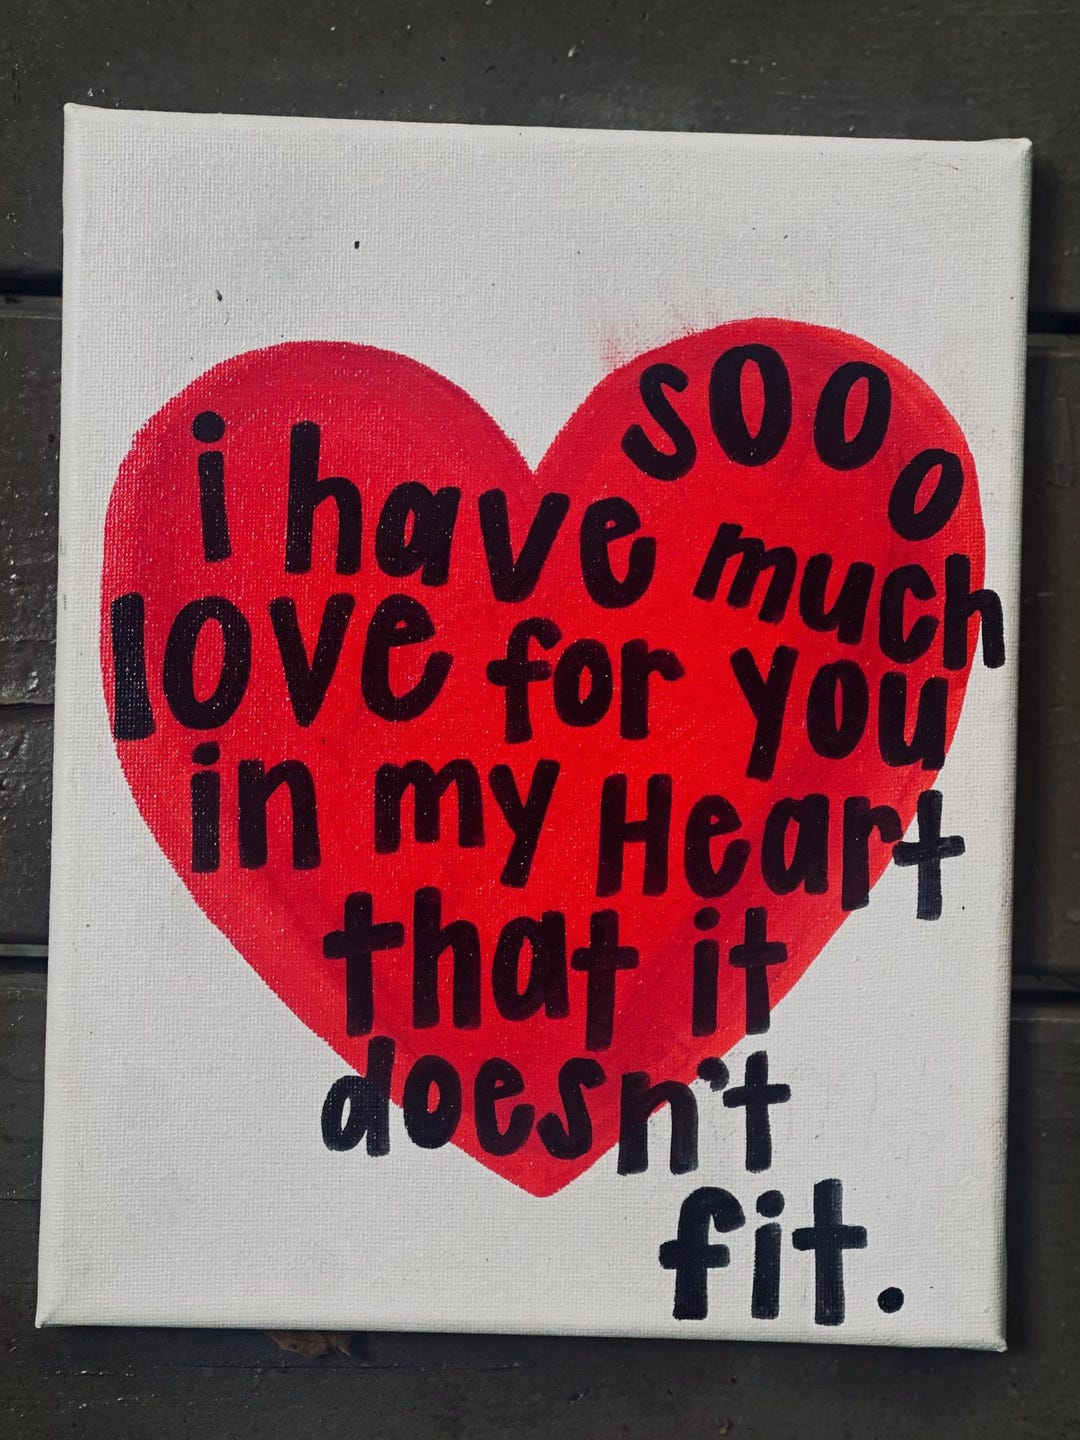 i have sooo much
love for you
in my Heart
that it
doesn't
fit.